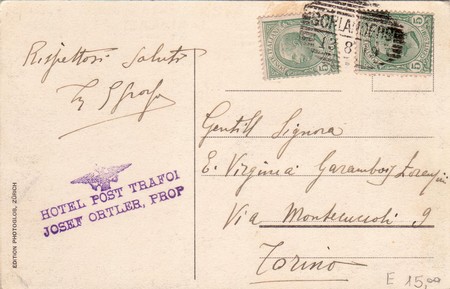 Rispettosi Saluti
HOTEL POST TRAFOI
JOSEF ORTLER, PROP
EDITION PHOTOGLOB, ZÜRICH
SCHLANDERS
13 8
5
5
Gentill Signora
E. Virginia Garambois Lorenzini
Via Montecuccoli 9
Torino
E 15,00